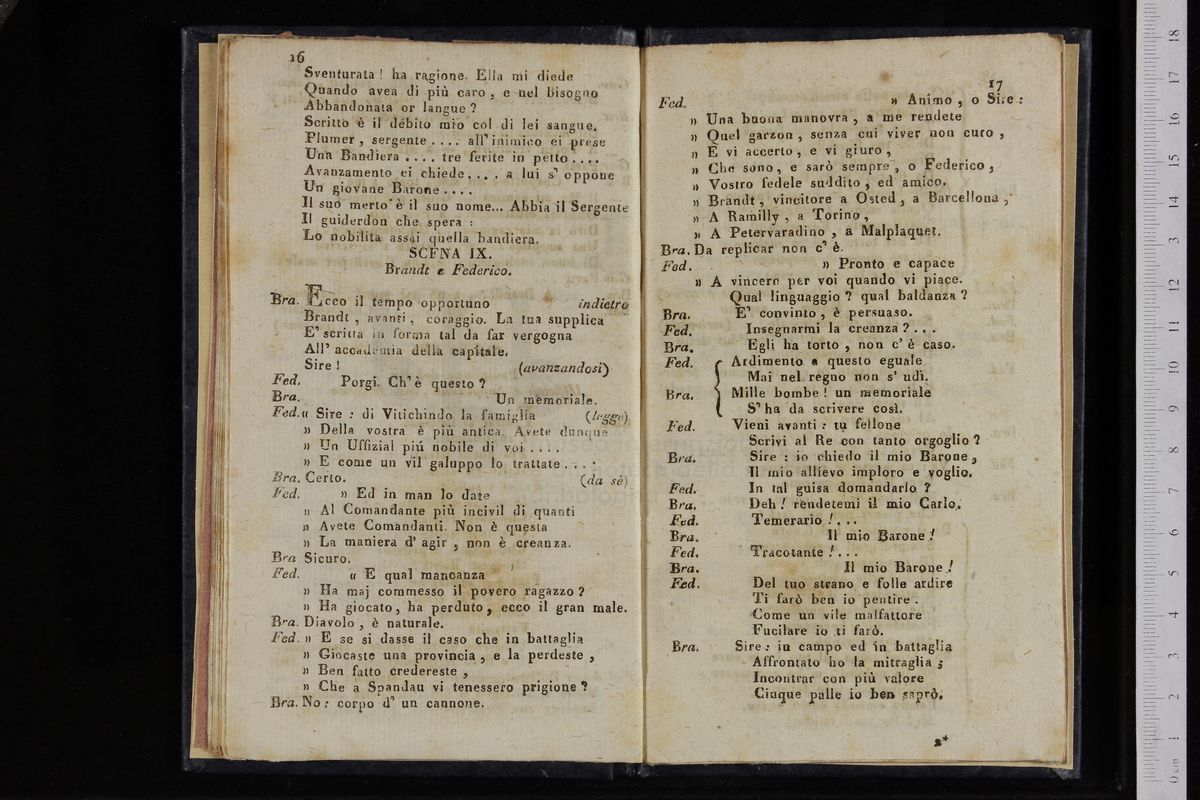 16
Sventurata ! ha ragione. Ella mi diede
Quando avea di più caro , e nel bisogno
Abbandonata or langue ?
Scritto è il debito mio col di lei sangue.
Plumer , sergente .... all' inimico ei prese
Una Bandiera .... tre ferite in petto ....
Avanzamento ei chiede .... a lui s' oppone
Un giovane Barone ....
Il suo merto è il suo nome... Abbia il Sergente
Il guiderdon che spera :
Lo nobilita assai quella bandiera.
SCENA IX.
Brandt e Federico.
Bra. Ecco il tempo opportuno indietro
Brandt , avanti , coraggio. La tua supplica
E' scritta in forma tal da far vergogna
All' accademia della capitale.
Sire ! (avanzandosi)
Fed. Porgi. Ch' è questo ?
Bra. Un memoriale.
Fed. « Sire : di Vitichindo la famiglia (legge)
» Della vostra è più antica. Avete dunque
» Un Uffizial piú nobile di voi ....
» E come un vil galuppo lo trattate ....
Bra. Certo. (da sè)
Fed. » Ed in man lo date
» Al Comandante più incivil di quanti
» Avete Comandanti. Non è questa
» La maniera d' agir , non è creanza.
Bra Sicuro.
Fed. « E qual mancanza
» Ha maj commesso il povero ragazzo ?
» Ha giocato, ha perduto, ecco il gran male.
Bra. Diavolo , è naturale.
Fed. » E se si dasse il caso che in battaglia
» Giocaste una provincia , e la perdeste ,
» Ben fatto credereste ,
» Che a Spandau vi tenessero prigione ?
Bra. No : corpo d' un cannone.
17
Fed. » Animo , o Sire :
» Una buona manovra , a me rendete
» Quel garzon , senza cui viver non curo ,
» E vi accerto , e vi giuro ,
» Che sono , e sarò sempre , o Federico ,
» Vostro fedele suddito , ed amico.
» Brandt , vincitore a Osted , a Barcellona ,
» A Ramilly , a Torino ,
» A Petervaradino , a Malplaquet.
Bra. Da replicar non c' è.
Fed. » Pronto e capace
» A vincere per voi quando vi piace.
Qual linguaggio ? qual baldanza ?
Bra. E' convinto , è persuaso.
Fed. Insegnarmi la creanza ? ...
Bra. Egli ha torto , non c' è caso.
Fed. Ardimento a questo eguale
Mai nel regno non s' udì.
Bra. Mille bombe ! un memoriale
S' ha da scrivere così.
Fed. Vieni avanti : tu fellone
Scrivi al Re con tanto orgoglio ?
Bra. Sire : io chiedo il mio Barone ,
Il mio allievo imploro e voglio.
Fed. In tal guisa domandarlo ?
Bra. Deh ! rendetemi il mio Carlo.
Fed. Temerario ! ...
Bra. Il mio Barone !
Fed. Tracotante ! ...
Bra. Il mio Barone !
Fed. Del tuo strano e folle ardire
Ti farò ben io pentire .
Come un vile malfattore
Fucilare io ti farò.
Bra. Sire : in campo ed in battaglia
Affrontato ho la mitraglia ;
Incontrar con più valore
Cinque palle io ben saprò.
2*
0 cm 1 2 3 4 5 6 7 8 9 10 11 12 13 14 15 16 17 18